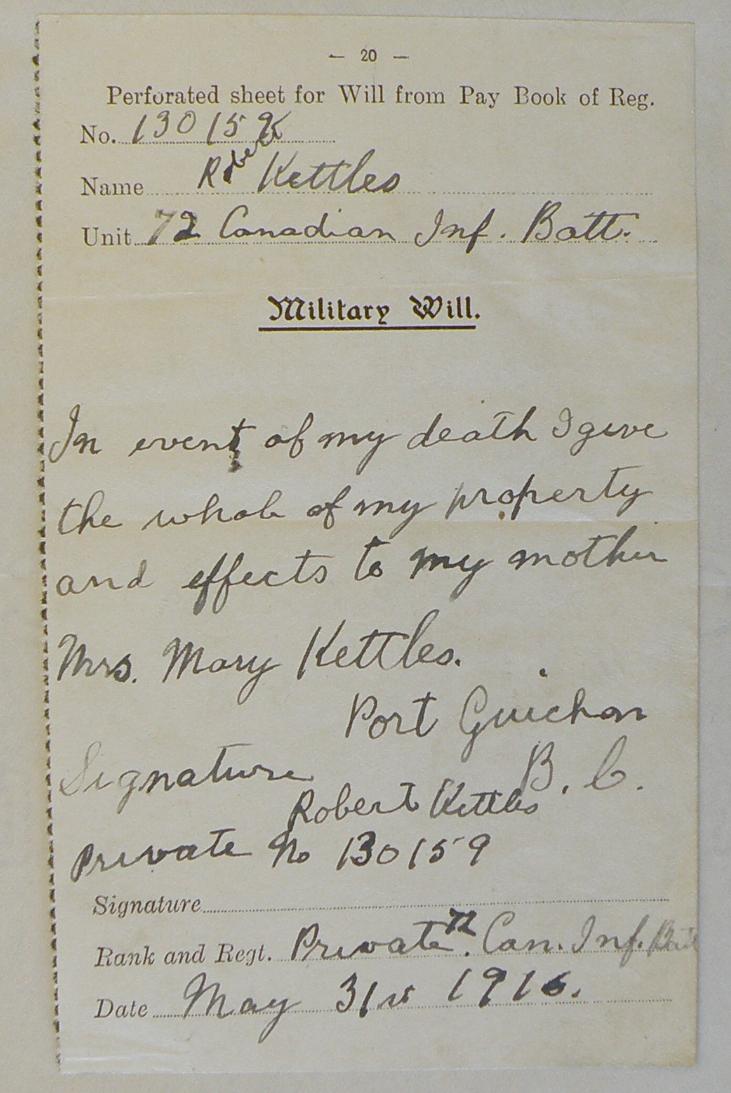 — 20 —
Perforated sheet for Will from Pay Book of Reg.
No. 130159
Name Robert Kettles
Unit 72 Canadian Inf. Batt.
Military Will.
In event of my death I give
the whole of my property
and effects to my mother
Mrs. Mary Kettles.
Port Guichon
B. C.
Signature
Robert Kettles
Private No 130159
Signature
Rank and Regt. Private 72. Can. Inf. Batt
Date May 31st 1916.